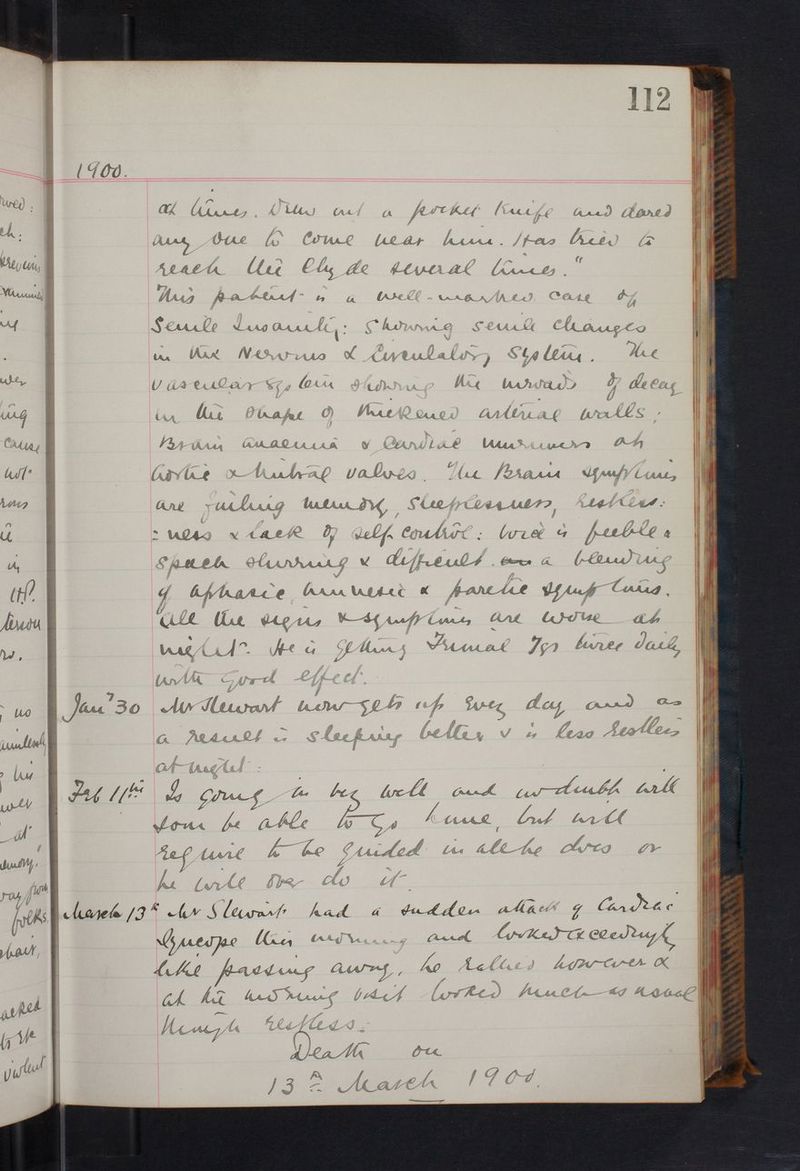 112
1900.
at times. Drew out a pocket knife and dared
any one to come near him. Has tried to
reach the Clyde several times."
This patient is a well-marked case of
Senile Insanity: showing senile changes
in the Nervous & Circulatory System. The
vascular system showing the inroads of decay
in the shape of thickened arterial walls;
Brain anaemia & cardiac murmurs at
Aortic & Mitral valves. The Brain symptoms
are failing memory, sleeplessness, restless:
:ness & lack of self control: voice is feeble &
speech slurring & difficult. an a blending
of aphasic, amnesic & paretic symptoms.
All the signs & symptoms are worse at
night. He is getting 7grs twice daily
with good effect.
Jany 30 Mr Stewart now gets up every day and as
a result is sleeping better & is less restless
at night:
Feb 11th Is going on very well and no doubt will
soon be able to go home, but will
require to be guided in all he does or
he will over do it.
March 13th Mr Stewart had a sudden attack of Cardiac
Syncope this morning and looked exceedingly
like passing away, he rallied however &
at the morning visit looked much as usual
though restless.
Death on
13th March 1900.
no
his
at
folks
cause
not
in